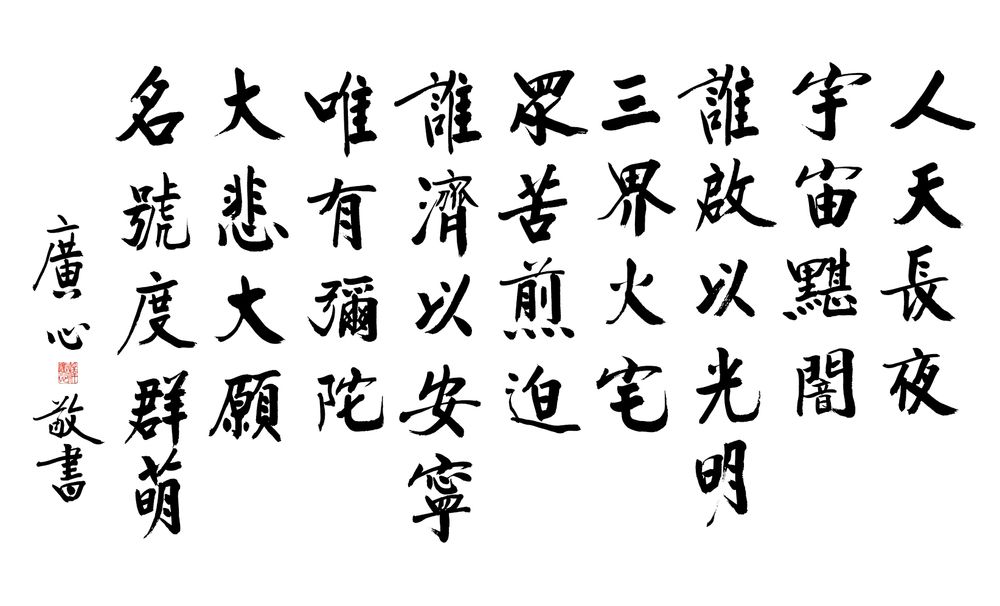 人天長夜
宇宙黮闇
誰啟以光明
三界火宅
眾苦煎迫
誰濟以安寧
唯有彌陀
大悲大願
名號度群萌
廣心敬書